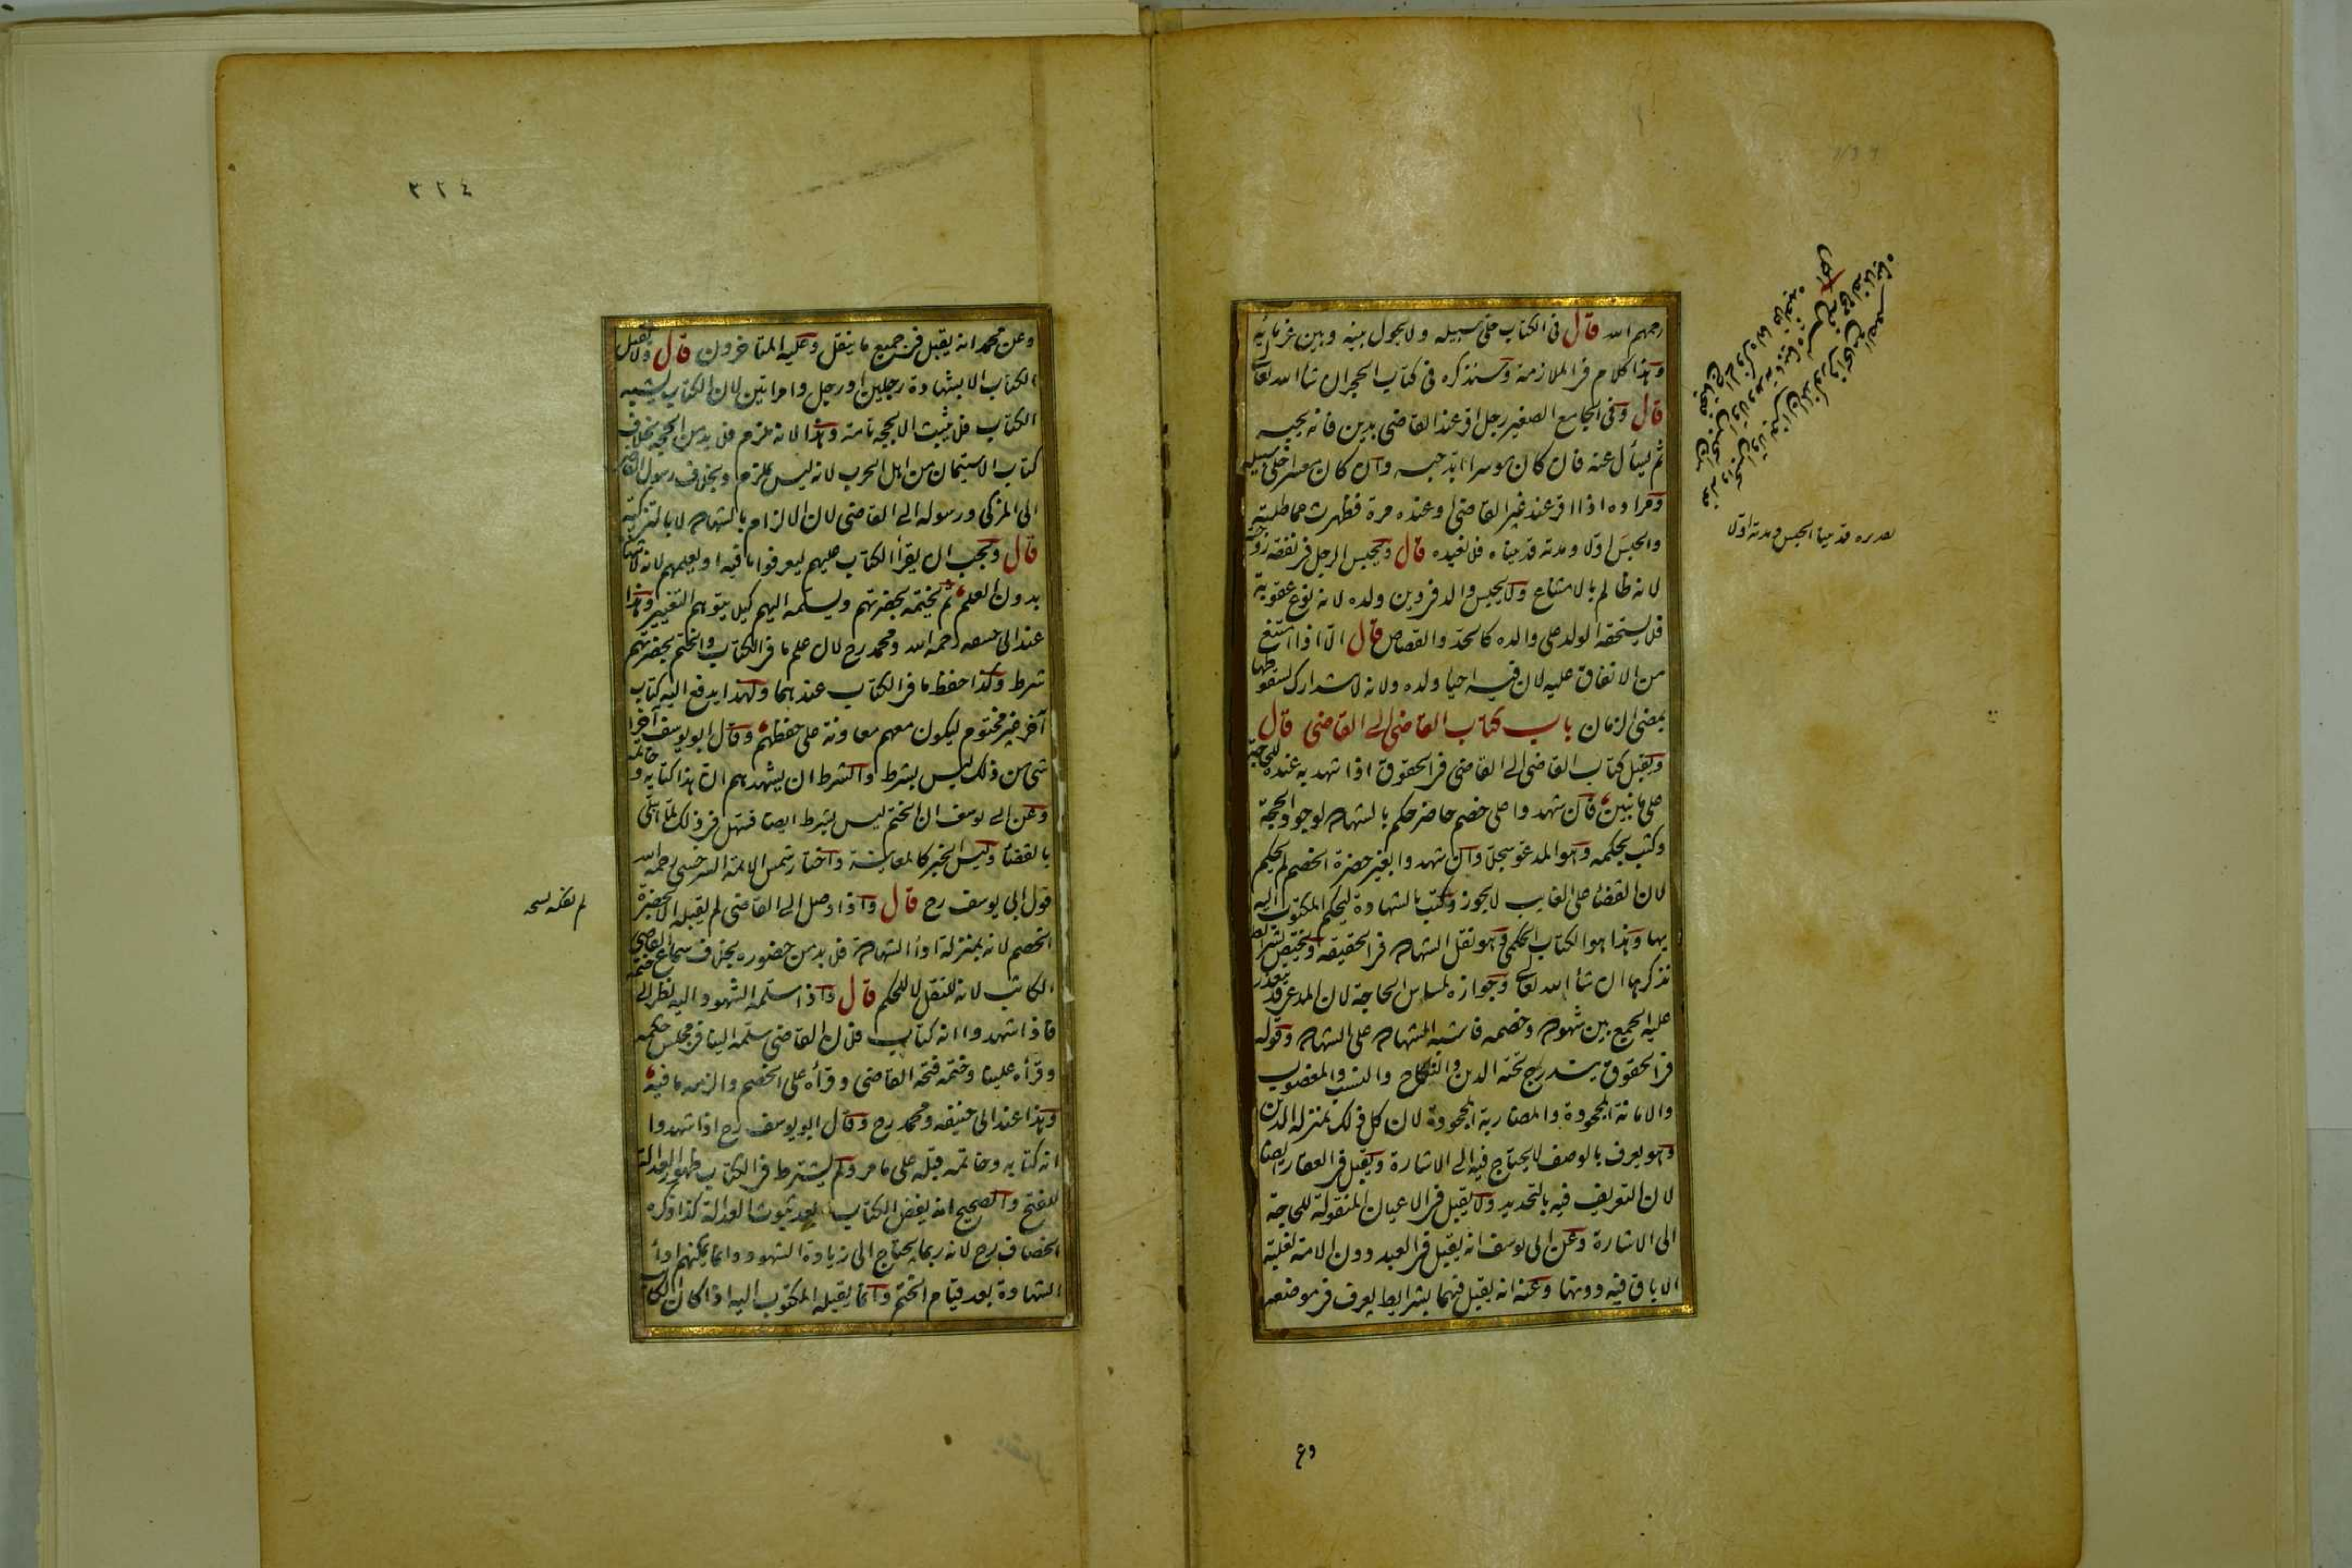 رحمهم الله قال فى الكتاب خلى سبيله ولا يحول بينه وبين غرمائه
وهذا كلام فى الملازمة وسنذكره فى كتاب الحجر ان شا الله تعالى
قال وفى الجامع الصغير رجل اقر عند القاضى بدين فانه يحبسه
ثم يسأل عنه فان كان موسرا ابد حبسه وان كان معسرا خلى سبيله
ومراده اذا اقر عند غير القاضى او عنده مرة فظهرت مماطلته
والحبس اولا ومدته قد بيناه فلا نعيده قال ويحبس الرجل فى نفقة زوجته
لانه ظالم بالامتناع ولا يحبس والد فى دين ولده لانه نوع عقوبة
فلا يستحقه الولد على والده كالحد والقصاص قال الا اذا امتنع
من الانفاق عليه لان فيه احيا ولده ولانه لا يتدارك لسقوطها
بمضى الزمان باب كتاب القاضى الى القاضى قال
ويقبل كتاب القاضى الى القاضى فى الحقوق اذا شهد به عنده للحاجة
على ما نبين فان شهدوا على خصم حاضر حكم بالشهادة لوجود الحجة
وكتب بحكمه وهو المدعو سجلا وان شهدوا بغير حضرة الخصم لم يحكم
لان القضاء على الغايب لا يجوز وكتب بالشهادة ليحكم المكتوب اليه
بها وهذا هو الكتاب الحكمى وهو نقل الشهادة فى الحقيقه ويختص بشرائط
نذكرها ان شأ الله تعالى وجوازه لمساس الحاجة لان المدعى قد يتعذر
عليه الجمع بين شهوده وخصمه فاشبه الشهادة على الشهادة وقوله
فى الحقوق يندرج تحته الدين والنكاح والنسب والمغصوب
والامانة المجحودة والمضاربة المجحودة لان كل ذلك بمنزلة الدين
وهو يعرف بالوصف لا يحتاج فيه الى الاشارة ويقبل فى العقار ايضا
لان التعريف فيه بالتحديد ولا يقبل فى الاعيان المنقولة للحاجة
الى الاشارة وعن ابى يوسف انه يقبل فى العبد دون الامة لغلبة
الاباق فيه دونها وعنه انه يقبل فيهما بشرايط يعرف فى موضعه
وعن محمد انه يقبل فى جميع ما ينقل وعليه المتاخرون قال ولا يقبل
الكتاب الا بشهادة رجلين او رجل وامراتين لان الكتاب يشبه
الكتاب فلا يثبت الا بحجة تامة وهذا لانه ملزم فلا بد من الحجة بخلاف
كتاب الاستيمان من اهل الحرب لانه ليس بملزم وبخلاف رسول القاضى
الى المزكى ورسوله الى القاضى لان الالزام بالشهادة لا بالتزكية
قال ويجب ان يقرأ الكتاب عليهم ليعرفوا ما فيه او يعلمهم لانه لا شهادة
بدون العلم ثم يختمه بحضرتهم ويسلمه اليهم كيلا يتوهم التغيير وهذا
عند ابى حنيفه رحمه الله ومحمد رح لان علم ما فى الكتاب والختم بحضرتهم
شرط وكذا حفظ ما فى الكتاب عندهما ولهذا يدفع اليه كتاب
آخر غير مختوم ليكون معهم معاونة على حفظهم وقال ابو يوسف آخرا
شى من ذلك ليس بشرط والشرط ان يشهدهم ان هذا كتابه وخاتمه
وعن ابى يوسف ان الختم ليس بشرط ايضا فسهل فى ذلك لما ابتلى
بالقضاء وليس الخبر كالمعاينة واختار شمس الائمة السرخسى رحمه الله
قول ابى يوسف رح قال واذا وصل الى القاضى لم يقبله الا بحضرة
الخصم لانه بمنزلة اداأ الشهادة فلا بد من حضوره بخلاف سماع القاضى
الكاتب لانه للنقل لا للحكم قال واذا سلمه الشهود اليه نظر الى ختمه
فاذا شهدوا انه كتاب فلان القاضى سلمه الينا فى مجلس حكمه
وقرأه علينا وختمه فتحه القاضى وقرأه على الخصم والزمه ما فيه
وهذا عند ابى حنيفه ومحمد رح وقال ابو يوسف رح اذا شهدوا
انه كتابه وخاتمه قبله على ما مر ولم يشترط فى الكتاب ظهور العدالة
للفتح والصحيح انه يفض الكتاب بعد ثبوت العدالة كذا ذكره
الخصاف رح لانه ربما يحتاج الى زيادة الشهود وانما يمكنهم ادأ
الشهادة بعد قيام الختم وانما يقبله المكتوب اليه اذا كان الكاتب
٣٢٤